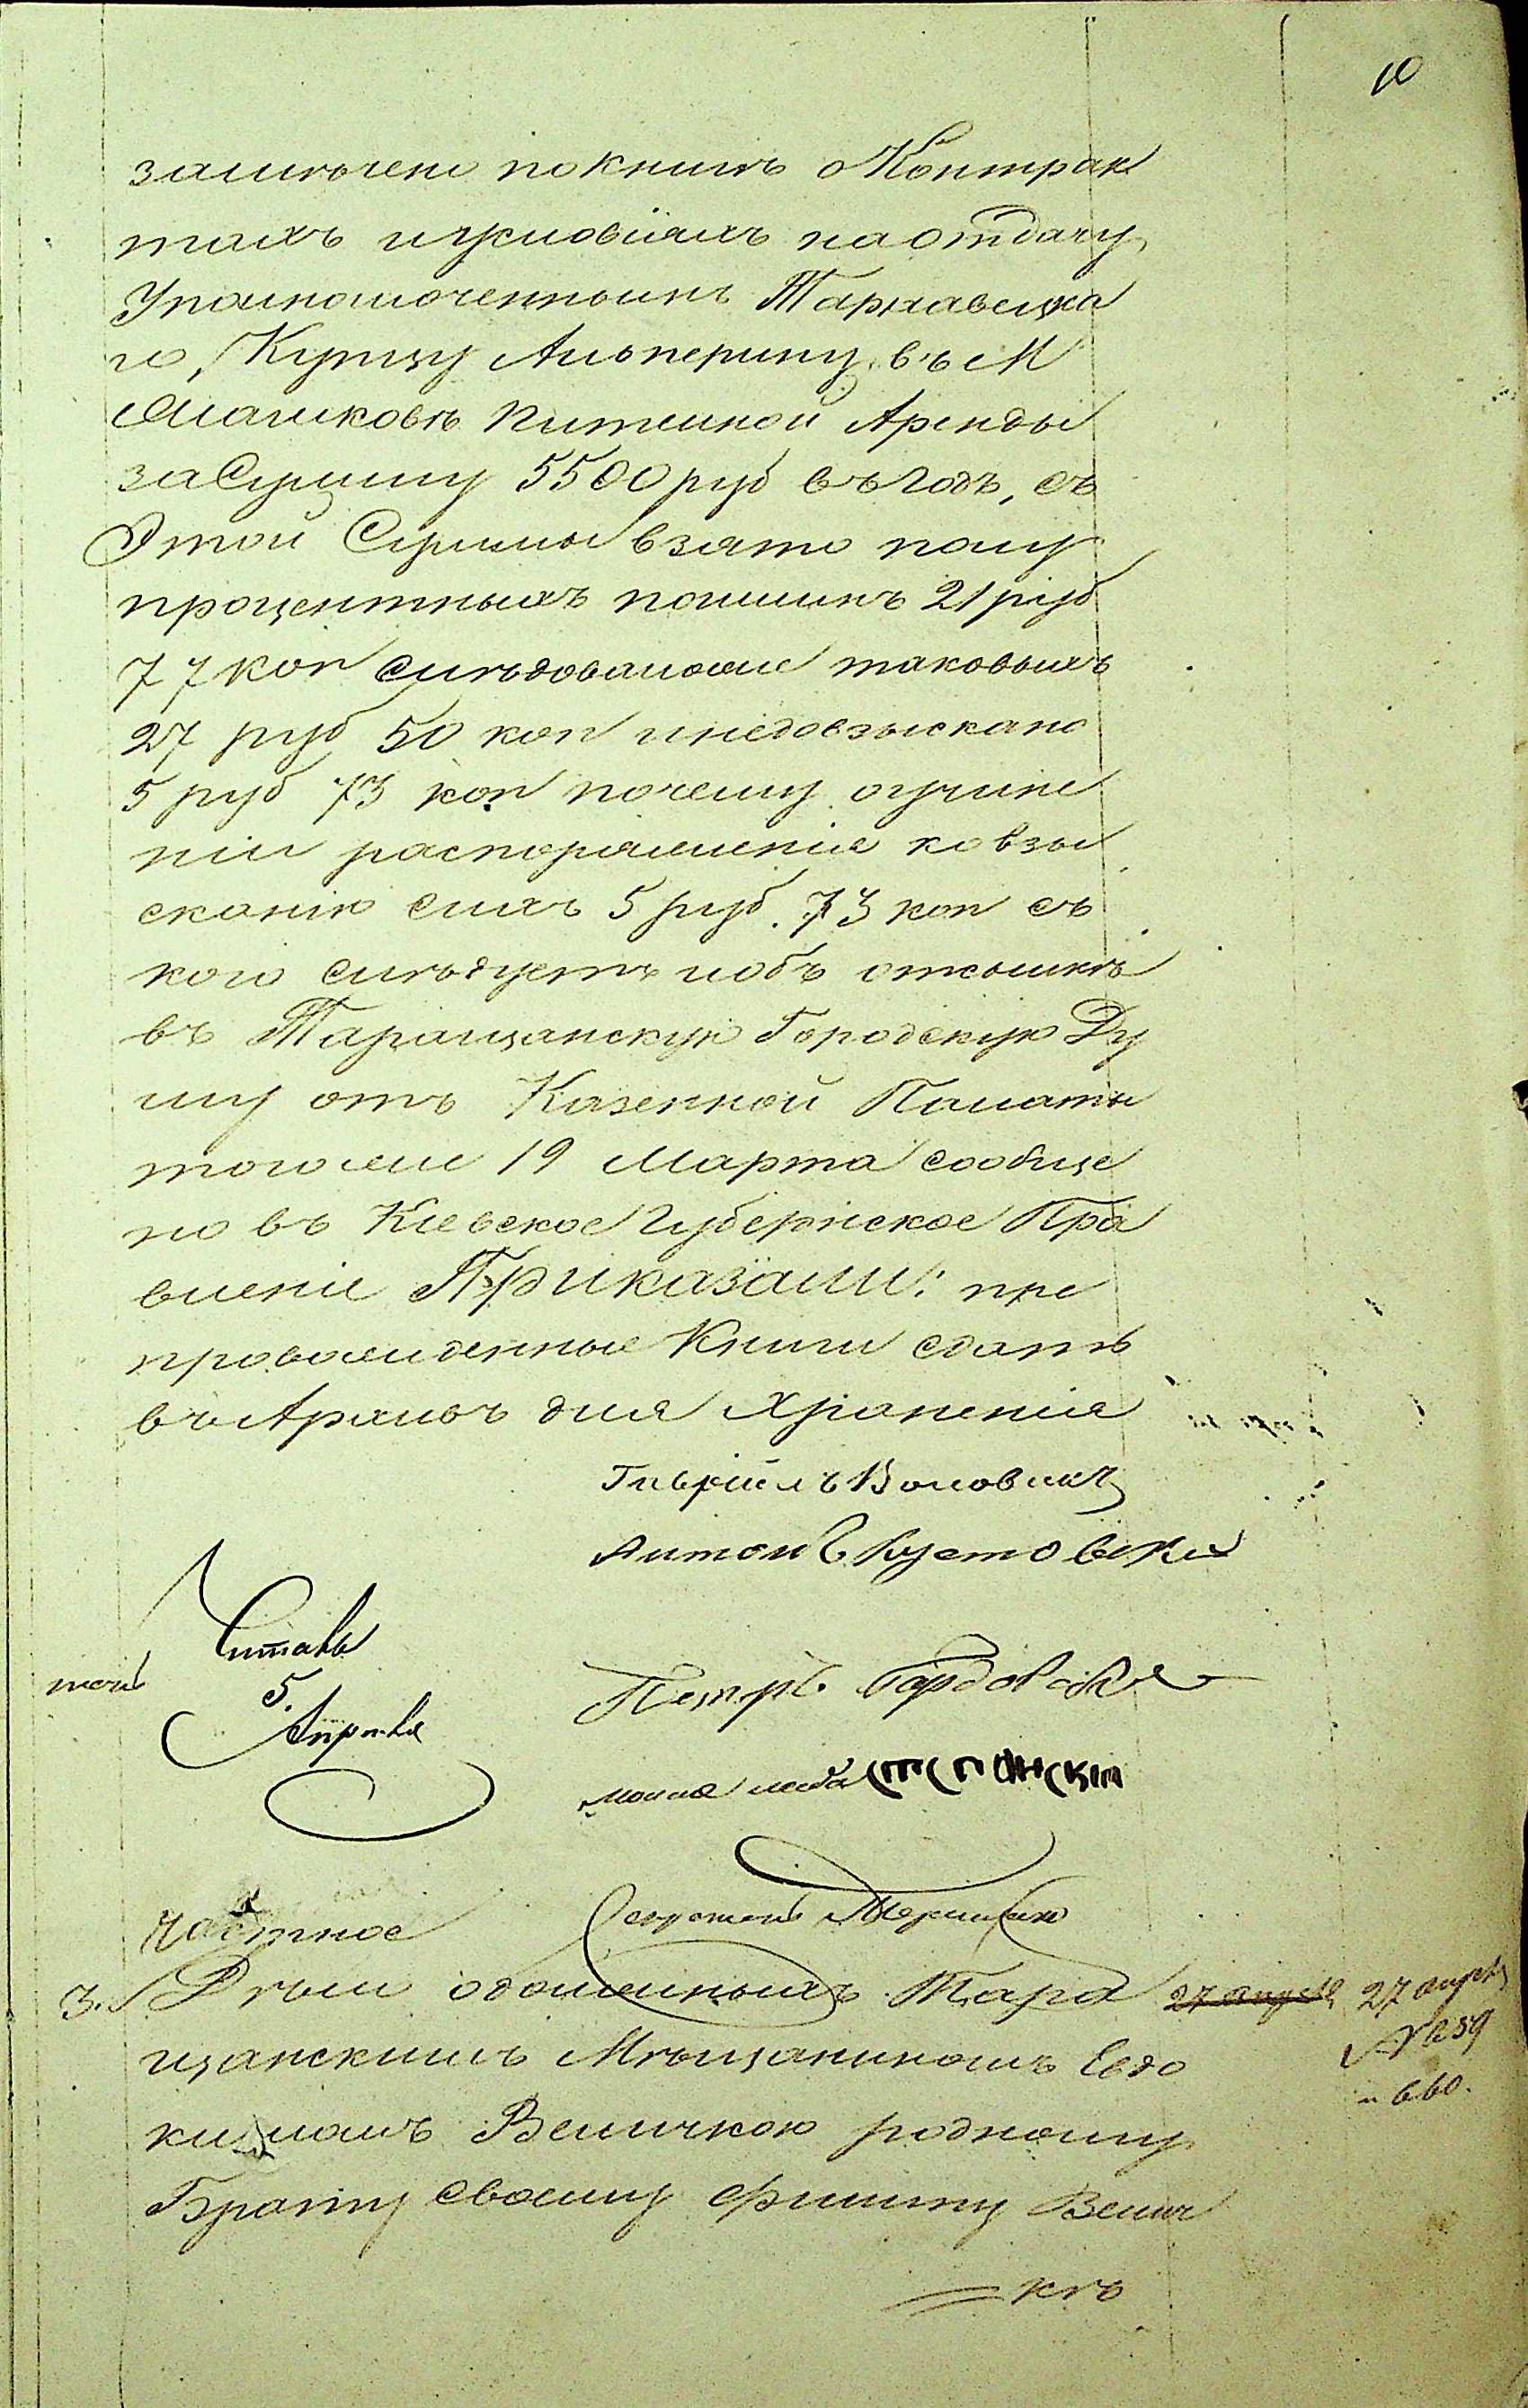 10
замѣчено по книгѣ о Контрак
тахъ и условіяхъ на отдачу
Уполномоченнымъ Тарнавецка
го, Купцу Альперину въ М
Машковѣ Питейной Аренды
за Сумму 5500 руб въ годъ, съ
Этой Суммы взято полу
процентныхъ пошлинъ 21 руб
77 коп слѣдовало же таковыхъ
27 руб 50 коп и недовзыскано
5 руб 73 коп почему о учине
ніи распоряженія ко взы
сканію сихъ 5 руб. 73 коп съ
кого слѣдуетъ и объ отсылкѣ
въ Таращанскую Городскую Ду
му отъ Казенной Палаты
того же 19 Марта сообще
но въ Кіевское Губернское Пра
вленіе Приказали: пре
провожденные Книги сдать
въ Архивъ для Храненія
Антонъ
Читалъ
5.
Апрѣля
Петръ
Секретарь
Частное
3. Дѣло о доме Тара
щанскимъ Мѣщаниномъ Евдо
кимомъ Величкою родному
Брату своему Филипу Велич
кѣ
27 апрѣля 27 апрѣля
№ 659
" 660.